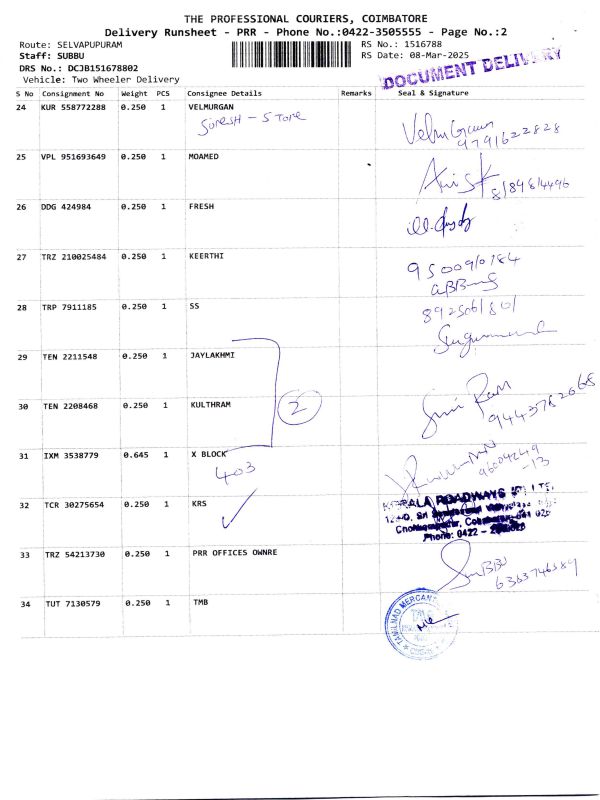 THE PROFESSIONAL COURIERS, COIMBATORE
Delivery Runsheet - PRR - Phone No.:0422-3505555 - Page No.:2
Route: SELVAPUPURAM
RS No.: 1516788
Staff: SUBBU
RS Date: 08-Mar-2025
DRS No.: DCJB151678802
Vehicle: Two Wheeler Delivery
DOCUMENT DELIVERY
S No Consignment No Weight PCS Consignee Details Remarks Seal & Signature
24 KUR 558772288 0.250 1 VELMURGAN
Suresh - Store
9791622828
25 VPL 951693649 0.250 1 MOAMED
8189814496
26 DDG 424984 0.250 1 FRESH
27 TRZ 210025484 0.250 1 KEERTHI
9500910184
28 TRP 7911185 0.250 1 SS
29 TEN 2211548 0.250 1 JAYLAKHMI
30 TEN 2208468 0.250 1 KULTHRAM
2
Ram
31 IXM 3538779 0.645 1 X BLOCK
403
32 TCR 30275654 0.250 1 KRS
KERALA ROADWAYS (P) LTD.
Phone: 0422 -
33 TRZ 54213730 0.250 1 PRR OFFICES OWNRE
SuBBU
34 TUT 7130579 0.250 1 TMB
TAMILNAD MERCANTILE